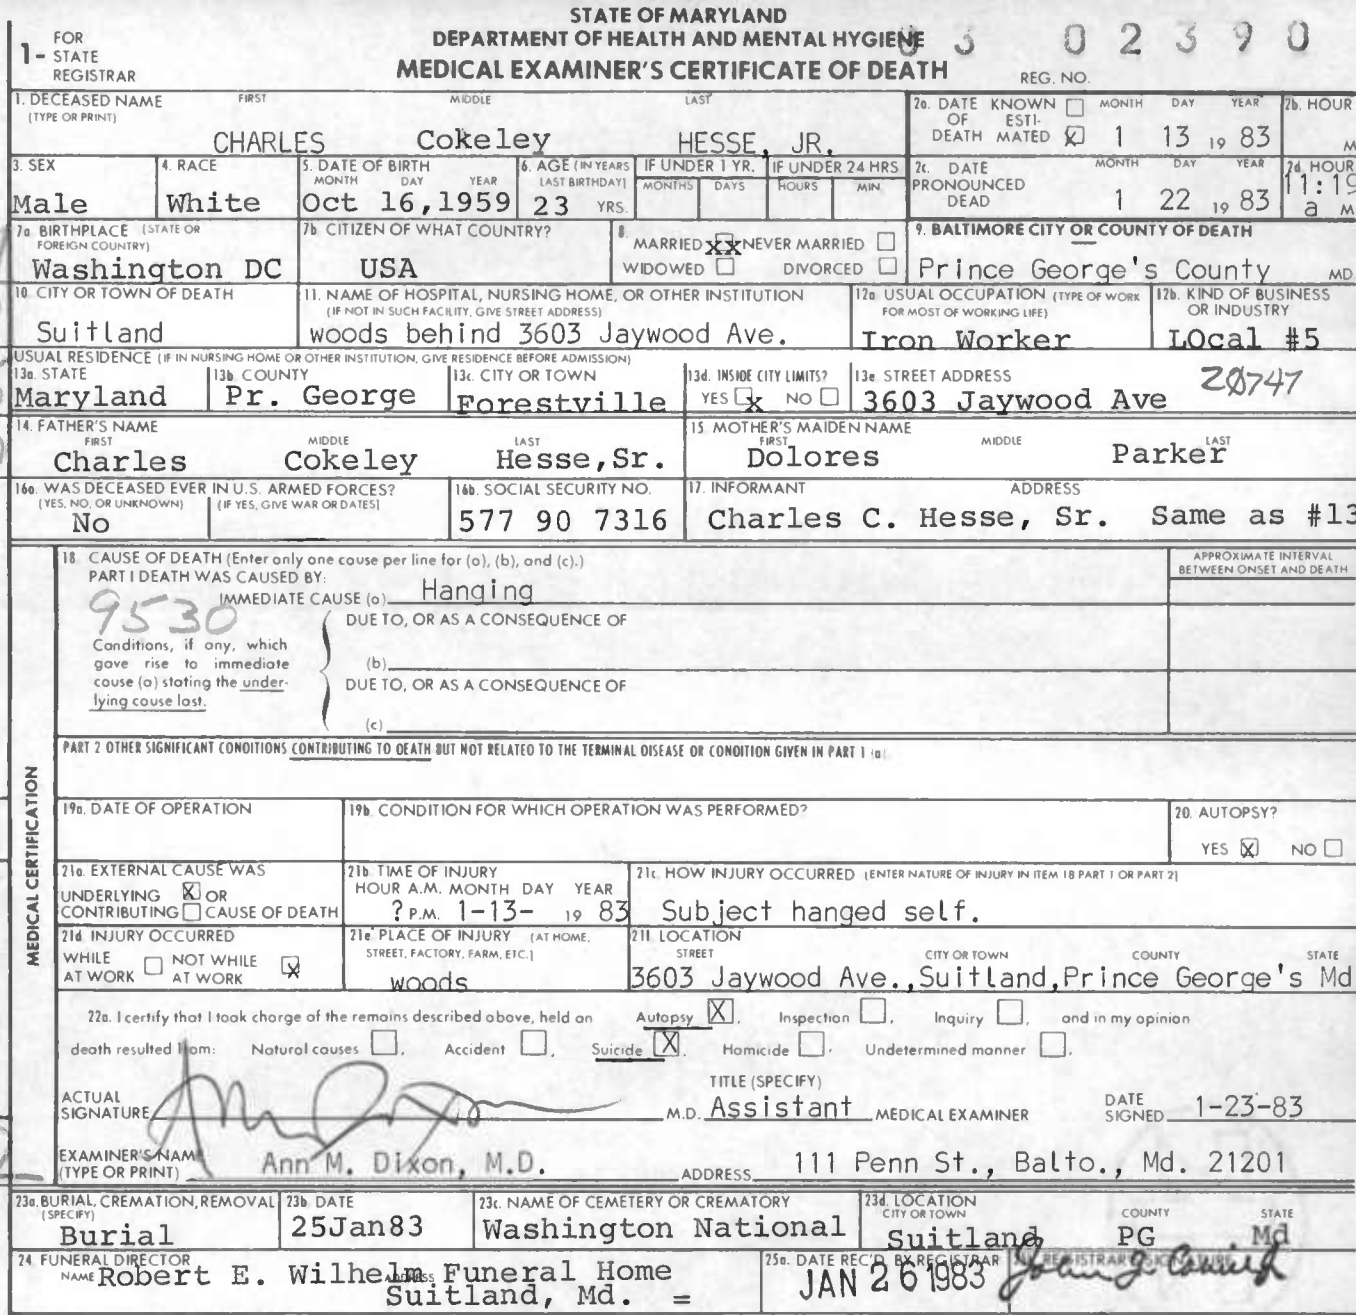 STATE OF MARYLAND
DEPARTMENT OF HEALTH AND MENTAL HYGIENE
MEDICAL EXAMINER'S CERTIFICATE OF DEATH
1- FOR STATE REGISTRAR
REG. NO. 3 02390
1. DECEASED NAME (TYPE OR PRINT) FIRST MIDDLE LAST
CHARLES Cokeley HESSE, JR.
2a. DATE OF DEATH KNOWN ☐ ESTI-MATED ☒ MONTH DAY YEAR
1 13 19 83
2b. HOUR
M
3. SEX
Male
4. RACE
White
5. DATE OF BIRTH MONTH DAY YEAR
Oct 16,1959
6. AGE (IN YEARS LAST BIRTHDAY)
23 YRS.
IF UNDER 1 YR. MONTHS DAYS
IF UNDER 24 HRS HOURS MIN.
2c. DATE PRONOUNCED DEAD MONTH DAY YEAR
1 22 19 83
2d. HOUR
11:19 a M
7a. BIRTHPLACE (STATE OR FOREIGN COUNTRY)
Washington DC
7b. CITIZEN OF WHAT COUNTRY?
USA
8. MARRIED XX NEVER MARRIED ☐
WIDOWED ☐ DIVORCED ☐
9. BALTIMORE CITY OR COUNTY OF DEATH
Prince George's County MD
10. CITY OR TOWN OF DEATH
Suitland
11. NAME OF HOSPITAL, NURSING HOME, OR OTHER INSTITUTION
(IF NOT IN SUCH FACILITY, GIVE STREET ADDRESS)
woods behind 3603 Jaywood Ave.
12a. USUAL OCCUPATION (TYPE OF WORK FOR MOST OF WORKING LIFE)
Iron Worker
12b. KIND OF BUSINESS OR INDUSTRY
LOcal #5
USUAL RESIDENCE (IF IN NURSING HOME OR OTHER INSTITUTION, GIVE RESIDENCE BEFORE ADMISSION)
13a. STATE
Maryland
13b. COUNTY
Pr. George
13c. CITY OR TOWN
Forestville
13d. INSIDE CITY LIMITS?
YES ☒ NO ☐
13e STREET ADDRESS
3603 Jaywood Ave 20747
14. FATHER'S NAME FIRST MIDDLE LAST
Charles Cokeley Hesse,Sr.
15. MOTHER'S MAIDEN NAME FIRST MIDDLE LAST
Dolores Parker
16a. WAS DECEASED EVER IN U.S. ARMED FORCES?
(YES, NO, OR UNKNOWN) (IF YES, GIVE WAR OR DATES)
No
16b. SOCIAL SECURITY NO.
577 90 7316
17. INFORMANT ADDRESS
Charles C. Hesse, Sr. Same as #13
MEDICAL CERTIFICATION
18. CAUSE OF DEATH (Enter only one cause per line for (a), (b), and (c).)
APPROXIMATE INTERVAL BETWEEN ONSET AND DEATH
PART I DEATH WAS CAUSED BY:
IMMEDIATE CAUSE (a) Hanging
9530
DUE TO, OR AS A CONSEQUENCE OF
Conditions, if any, which gave rise to immediate cause (a) stating the under-lying cause last.
(b)
DUE TO, OR AS A CONSEQUENCE OF
(c)
PART 2 OTHER SIGNIFICANT CONDITIONS CONTRIBUTING TO DEATH BUT NOT RELATED TO THE TERMINAL DISEASE OR CONDITION GIVEN IN PART 1 (a)
19a. DATE OF OPERATION
19b. CONDITION FOR WHICH OPERATION WAS PERFORMED?
20. AUTOPSY?
YES ☒ NO ☐
21a. EXTERNAL CAUSE WAS
UNDERLYING ☒ OR
CONTRIBUTING ☐ CAUSE OF DEATH
21b. TIME OF INJURY
HOUR A.M. MONTH DAY YEAR
? P.M. 1-13- 19 83
21c. HOW INJURY OCCURRED (ENTER NATURE OF INJURY IN ITEM 18 PART 1 OR PART 2)
Subject hanged self.
21d. INJURY OCCURRED
WHILE AT WORK ☐ NOT WHILE AT WORK ☒
21e. PLACE OF INJURY (AT HOME, STREET, FACTORY, FARM, ETC.)
woods
21f. LOCATION
STREET CITY OR TOWN COUNTY STATE
3603 Jaywood Ave.,Suitland,Prince George's Md
22a. I certify that I took charge of the remains described above, held an Autopsy ☒, Inspection ☐, Inquiry ☐, and in my opinion
death resulted from: Natural causes ☐, Accident ☐, Suicide ☒, Homicide ☐, Undetermined manner ☐.
ACTUAL SIGNATURE
TITLE (SPECIFY)
M.D. Assistant MEDICAL EXAMINER
DATE SIGNED 1-23-83
EXAMINER'S NAME (TYPE OR PRINT) Ann M. Dixon, M.D.
ADDRESS 111 Penn St., Balto., Md. 21201
23a. BURIAL, CREMATION, REMOVAL (SPECIFY)
Burial
23b. DATE
25Jan83
23c. NAME OF CEMETERY OR CREMATORY
Washington National
23d. LOCATION
CITY OR TOWN COUNTY STATE
Suitland PG Md
24. FUNERAL DIRECTOR
NAME Robert E. Wilhelm Funeral Home
ADDRESS Suitland, Md. =
25a. DATE REC'D. BY REGISTRAR
JAN 26 1983
REGISTRAR'S SIGNATURE
John J.